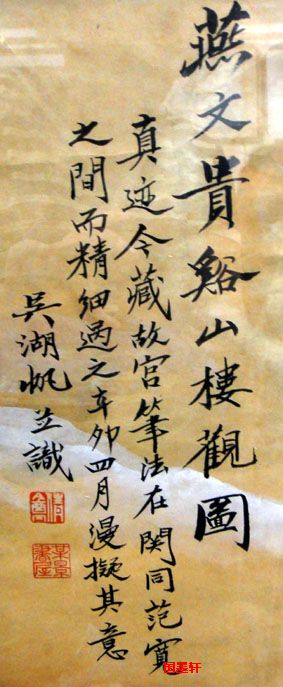 燕文貴谿山樓觀圖
真迹今藏故宮筆法在関同范寬
之間而精細過之辛卯四月漫擬其意
吳湖帆並識
国墨轩